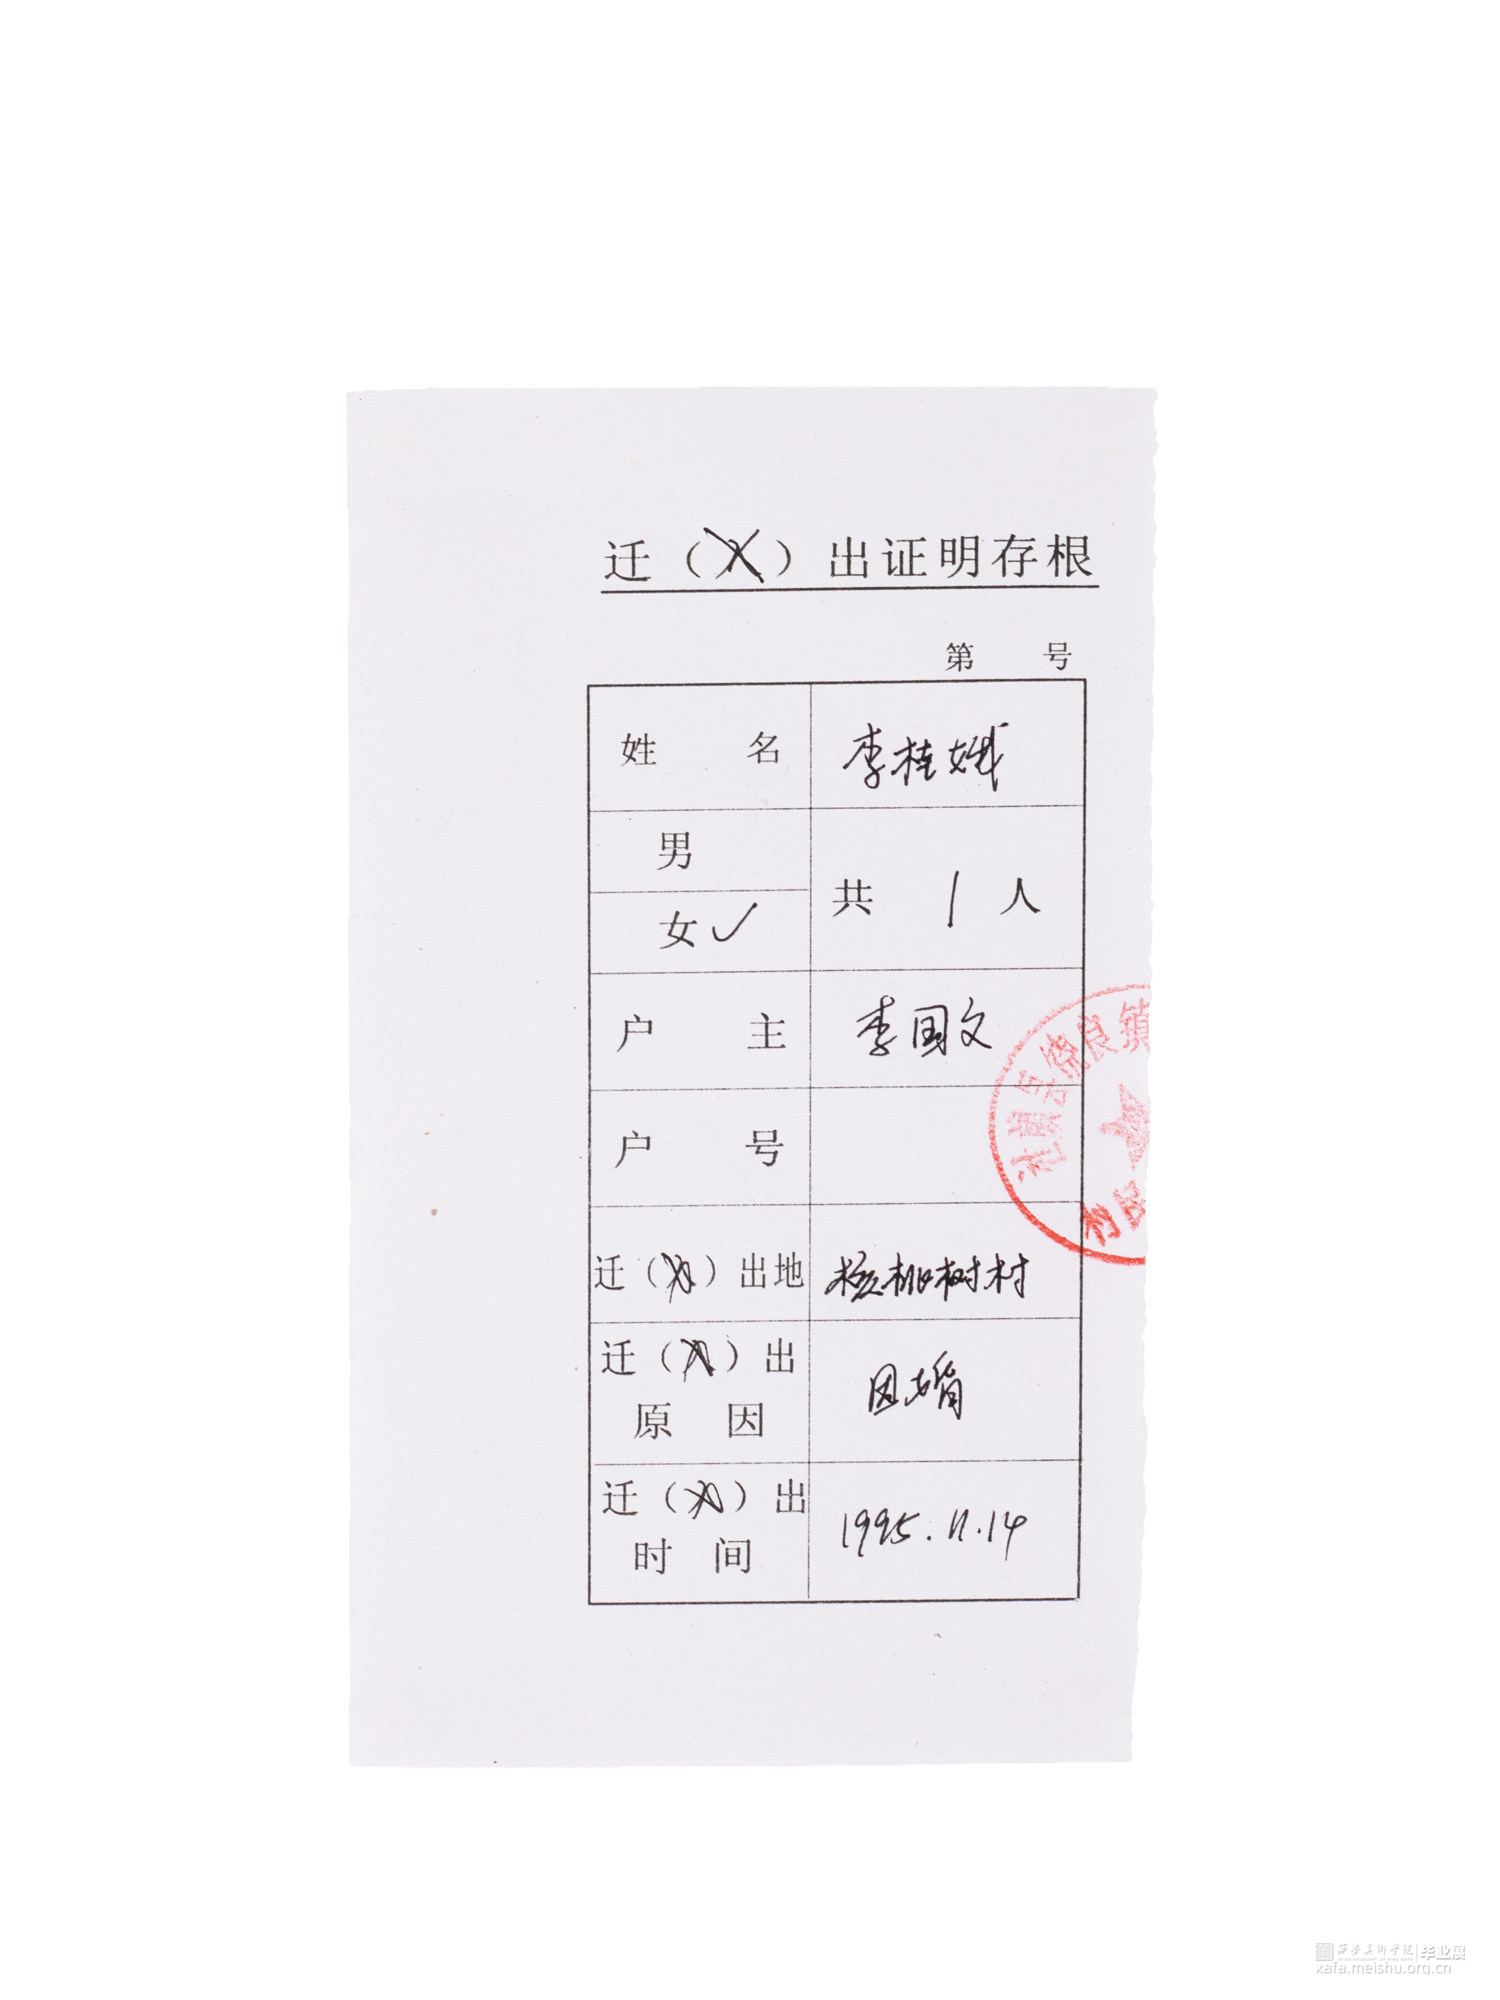 迁（入）出证明存根
第 号
姓 名 李桂娥
男
女✓
共 1 人
户 主 李国文
户 号
迁（入）出地 核桃树村
迁（入）出
原 因
因婚
迁（入）出
时 间
1995.11.14
县饶良镇
村民
西安美术学院 毕业展
xafa.meishu.org.cn